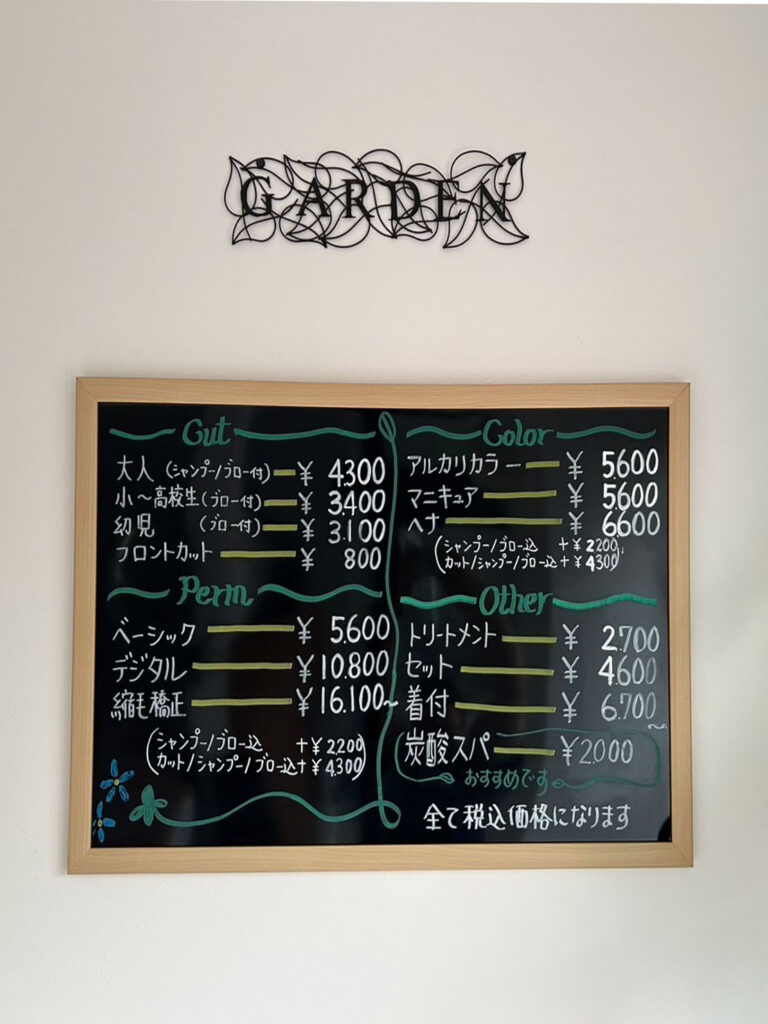 GARDEN
Cut
大人 (シャンプー/ブロー付) ¥ 4300
小〜高校生 (ブロー付) ¥ 3.400
幼児 (ブロー付) ¥ 3.100
フロントカット ¥ 800
Perm
ベーシック ¥ 5.600
デジタル ¥ 10.800
縮毛矯正 ¥ 16.100〜
(シャンプー/ブロー込 +¥2,200
カット/シャンプー/ブロー込+¥4,300)
Color
アルカリカラー ¥ 5.600
マニキュア ¥ 5.600
ヘナ ¥ 6.600
(シャンプー/ブロー込 +¥2200
カット/シャンプー/ブロー込+¥4300)
Other
トリートメント ¥ 2.700
セット ¥ 4.600
着付 ¥ 6.700〜
炭酸スパ ¥2000
おすすめです
全て税込価格になります